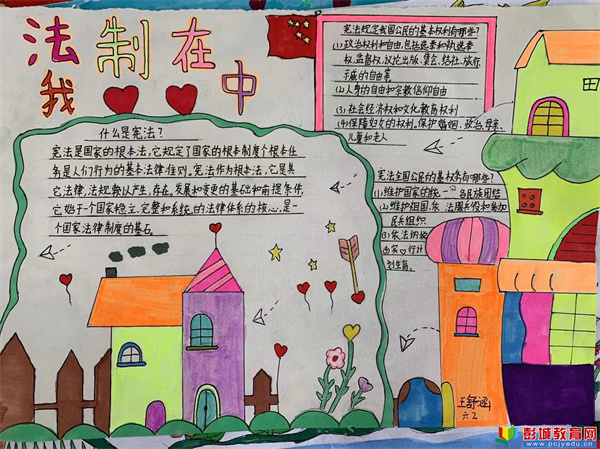 法制在
我
中
什么是宪法?
宪法是国家的根本法,它规定了国家的根本制度个根本任
务是人们行为的基本法律准则。宪法作为根本法,它是其
它法律,法规赖以产生,存在,发展和变更的基础和前提条件,
它始于一个国家独立、完整和系统的法律体系的核心,是一
个国家法律制度的基石
宪法规定我国公民的基本权利有哪些?
(1)政治权利和自由,包括选举和执选举
权,监督权,议论出版、集会、结社、旅行
示威的自由等
(2)人身的自由和宗教信仰自由
(3)社会经济权和文化教育权利
(4)保障妇女的权利。保护婚姻、政治、母亲、
儿童和老人
宪法全国公民的基权务有哪些?
(1)维护国家的统一 各民族团结
(2)维护祖国、依 法服兵役和参加
民兵组织
(3)依法纳
王舒涵
六2
彭城教育网
www.pcjyedu.cn